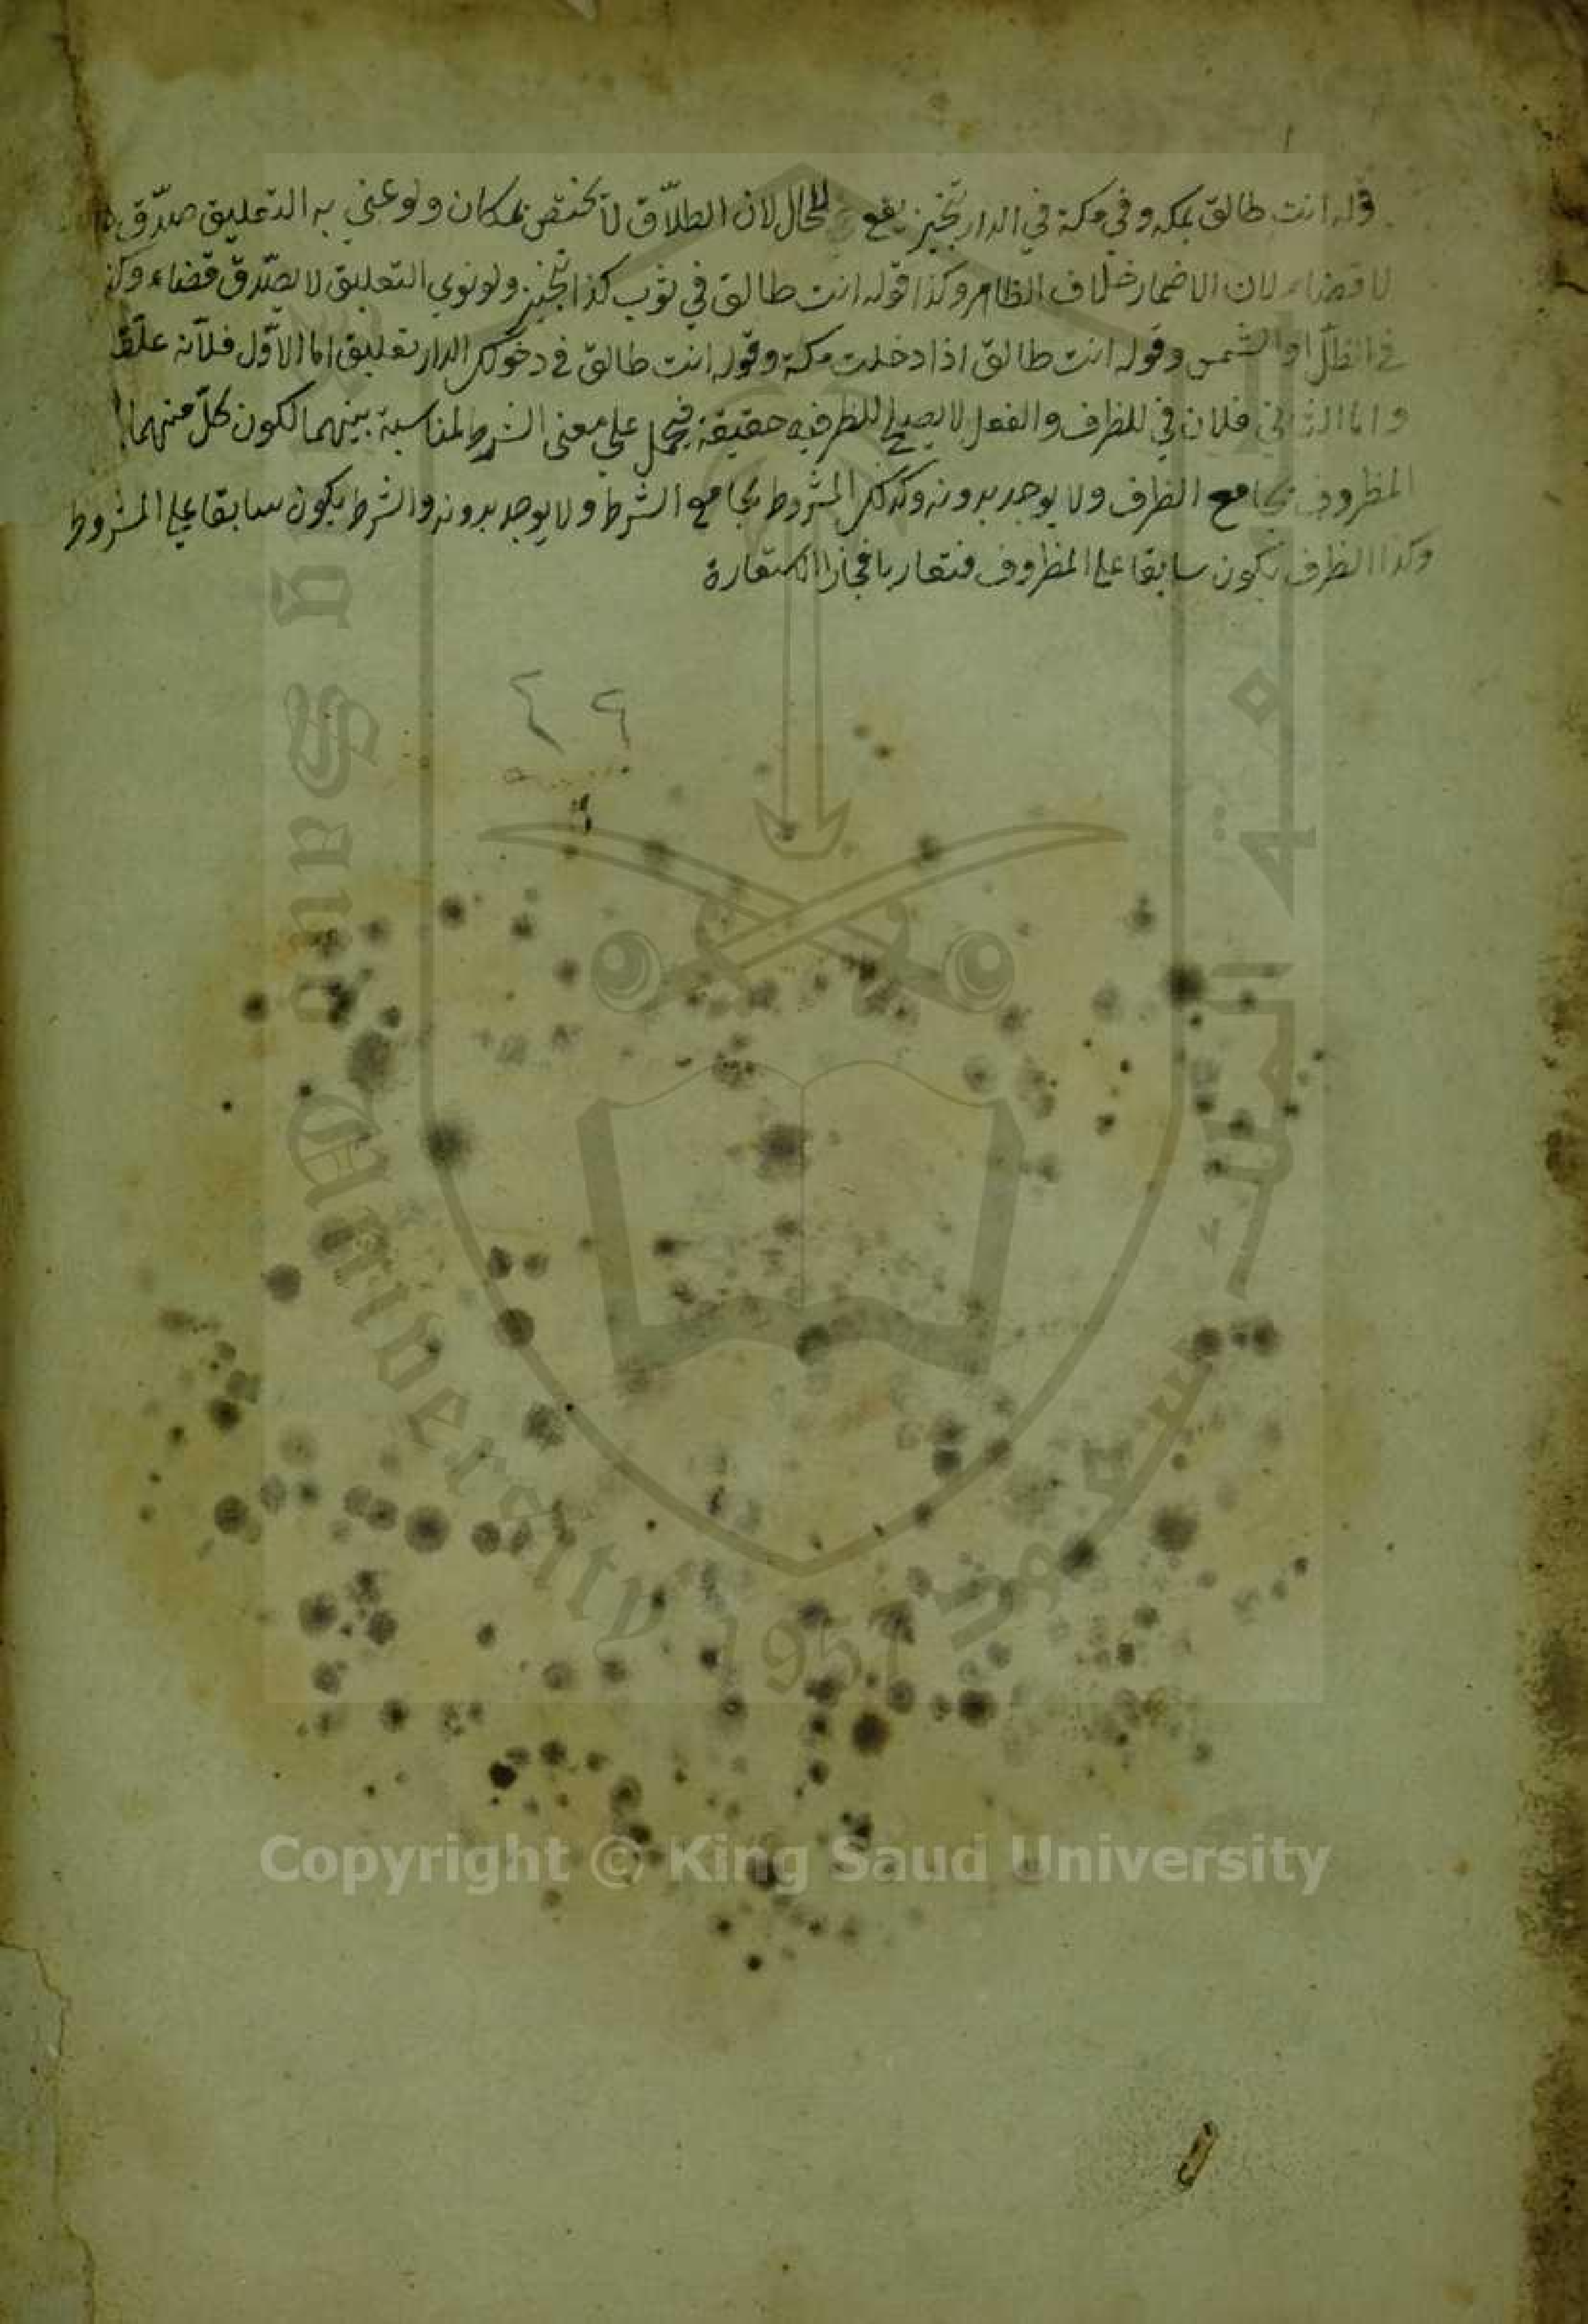 قوله انت طالق بمكة وفي مكة في الدار تنجيز يقع للحال لان الطلاق لا يختص بمكان ولو عني به التعليق صدق
لا قضاء لان الاضمار خلاف الظاهر وكذا قوله انت طالق في ثوب كذا تنجيز ولو نوى التعليق لا يصدق قضاء وكذا
في الظل او الشمس وقوله انت طالق اذا دخلت مكة وقوله انت طالق في دخولك الدار تعليق اما الاول فلانه علقه
واما الثاني فلان في للظرف والفعل لا يصلح للظرفية حقيقة فيحمل على معنى الشرط لمناسبة بينهما لكون كل منهما
المظروف يجامع الظرف ولا يوجد بدونه وكذلك المشروط يجامع الشرط ولا يوجد بدونه والشرط يكون سابقا على المشروط
وكذا الظرف يكون سابقا على المظروف فتقاربا فجاز الاستعارة
٤٩
King Saud University 1957
Copyright © King Saud University